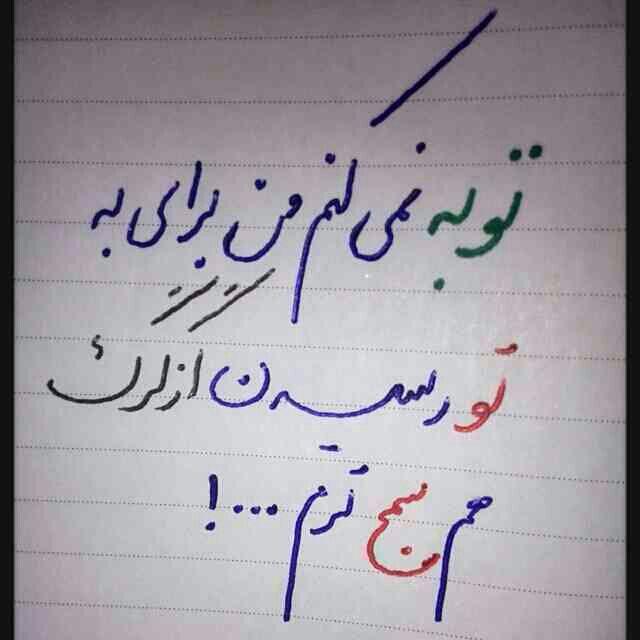 توبه نمی کنم من برای به
تو رسیدن از گرگ
هم سمج ترم ...!